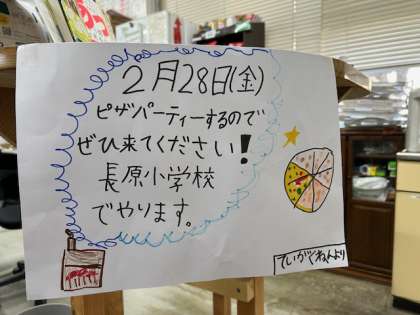 2月28日(金)
ピザパーティーするので
ぜひ来てください!
長原小学校
でやります。
ていがくねんより